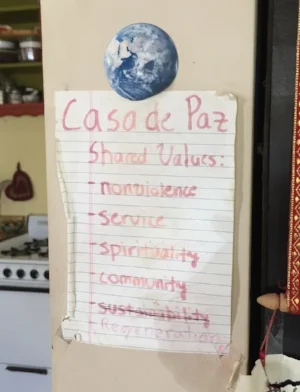 Casa de Paz
Shared Values:
- nonviolence
- service
- spirituality
- community
- sustainability
- Regeneration